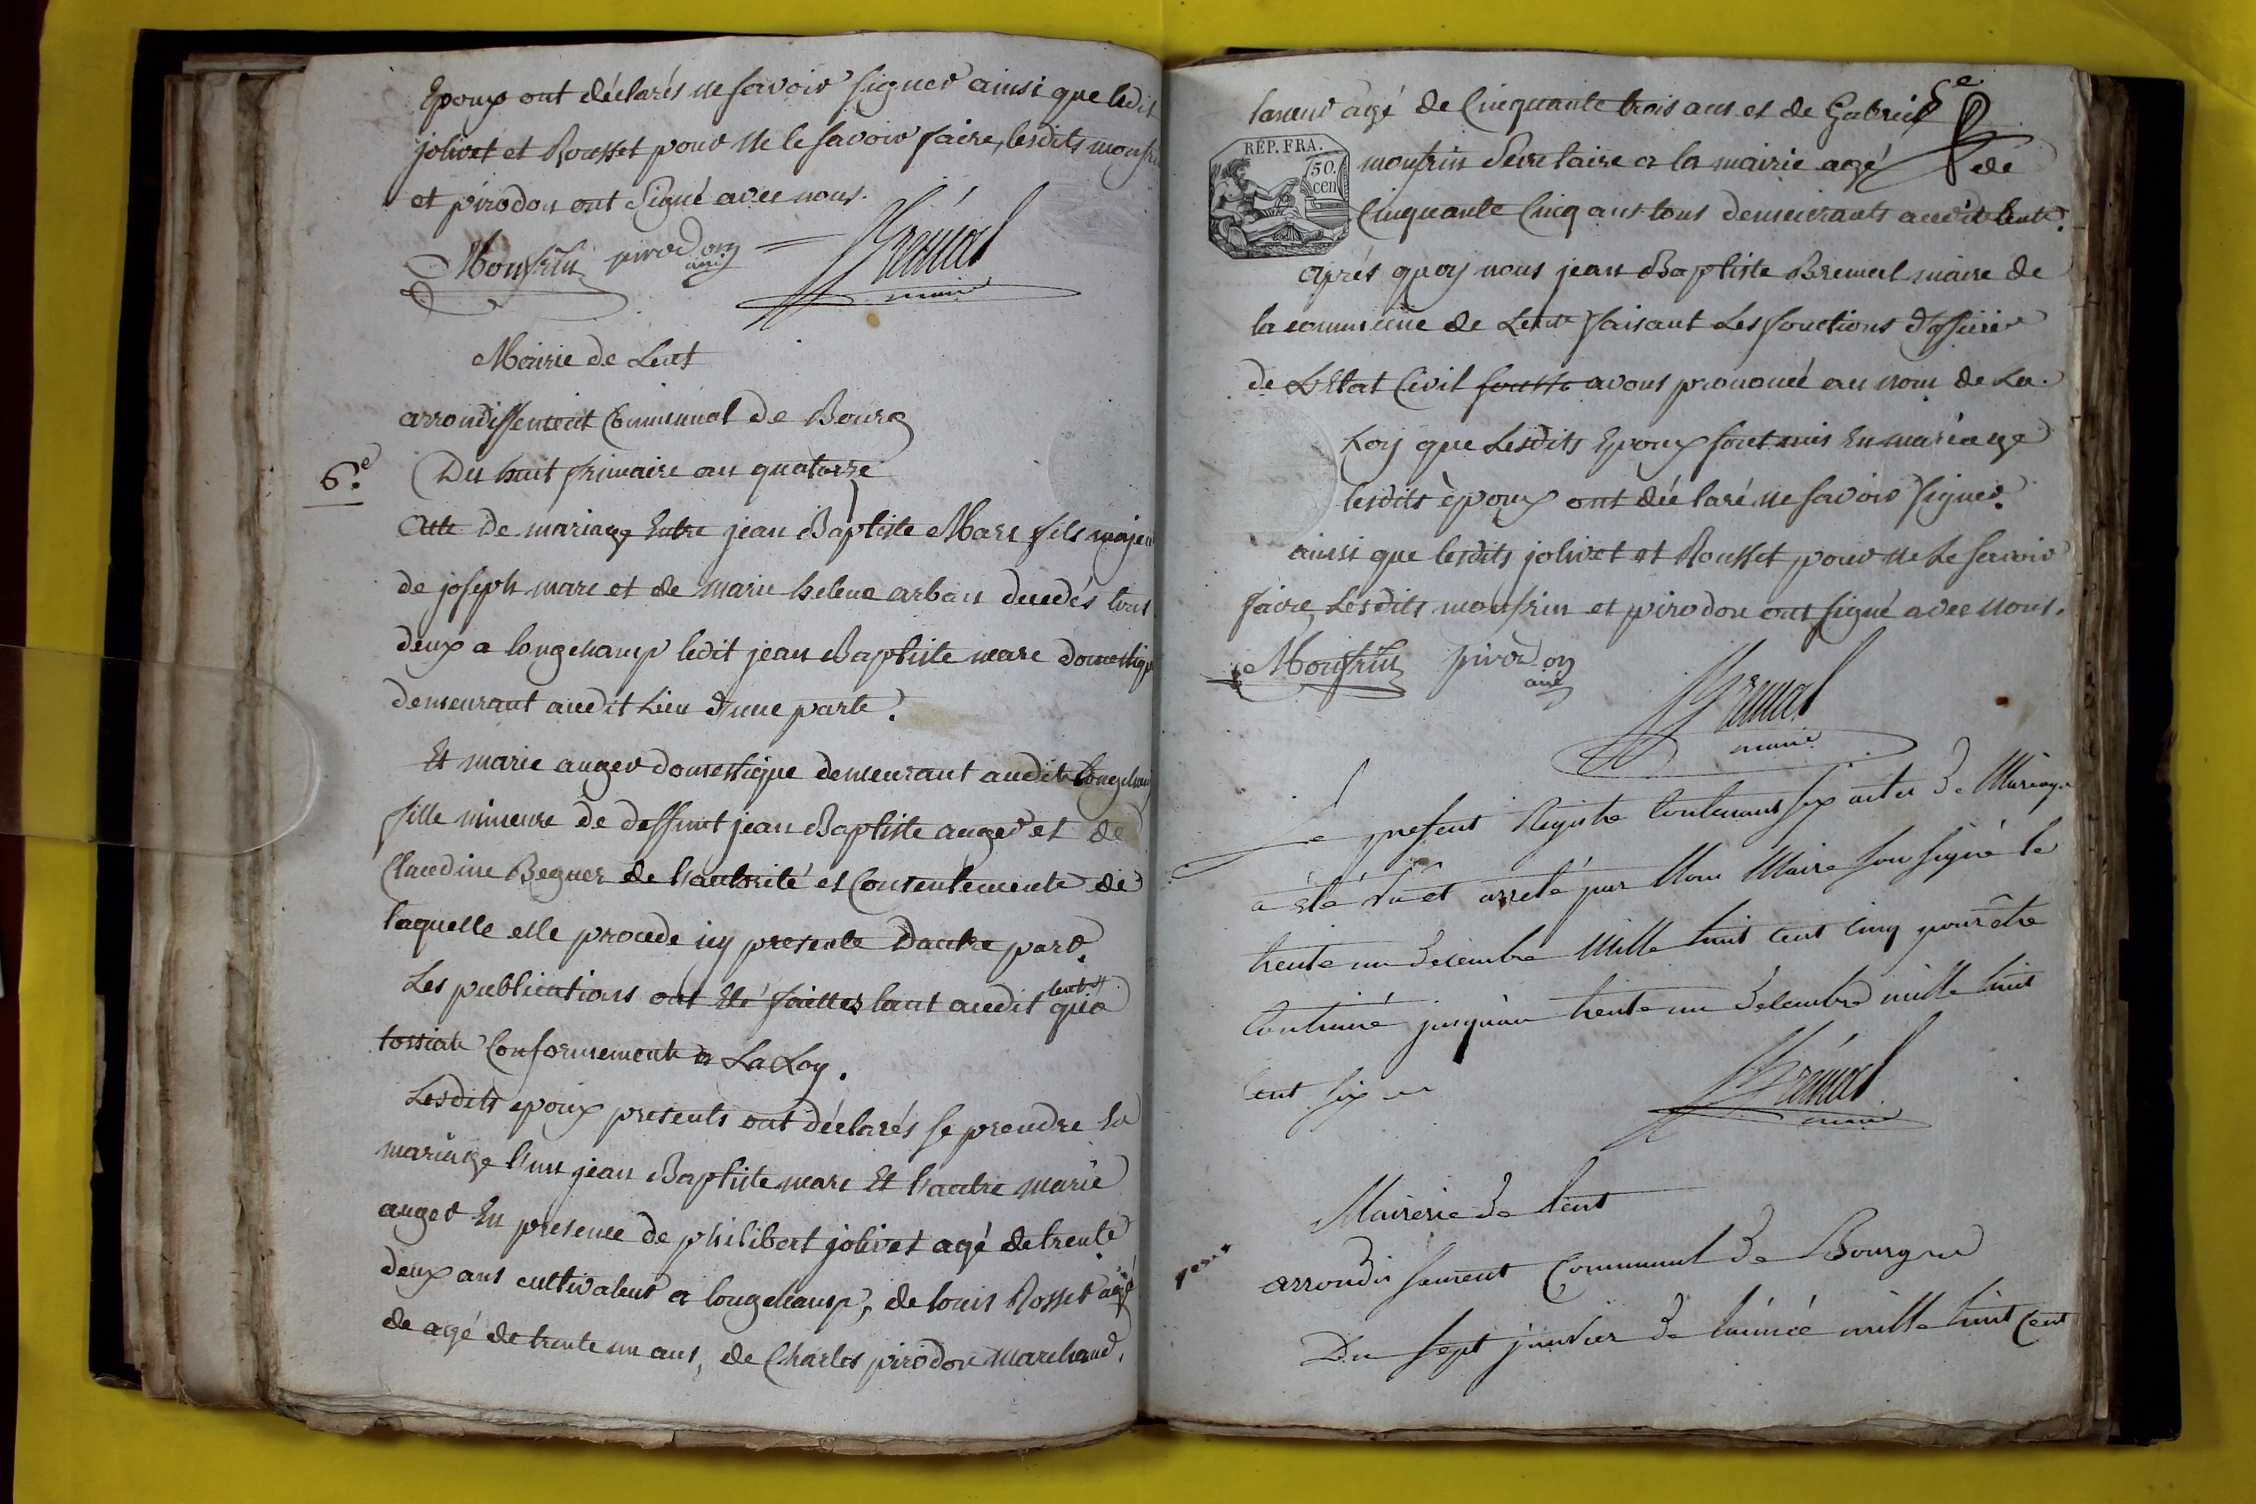 Epoux ont déclarés ne savoir signer ainsi que ledit
jolivet et Rousset pour ne le savoir faire, lesdits monfrin
et pirodon ont signé avec nous.
Monfrin pirodon Bremal
maire
Mairie de Lent
arrondissement Communal de Bourg
6.e Du huit frimaire an quatorze
Acte de mariage Entre jean Baptiste Marc fils majeur
de joseph marc et de marie helene arban decedés tous
deux a longchamp ledit jean Baptiste marc domestique
demeurant audit Lieu d'une parte.
Et marie auger domestique demeurant audit Longchamp
fille mineure de deffunt jean Baptiste auger et de
Claudine Beguer de Lautorité et Consentemente de
laquelle elle procede icy presente Dautre part.
Les publications ont Eté faittes tant audit lent qua
tossiat Conformement a La Loy.
Lesdits epoux presents ont déclarés se prendre En
mariage Lun jean Baptiste marc Et Lautre marie
auger En presence de philibert jolivet agé de trente
deux ans cultivateur a longchamp, de louis Rosset agé
de agé de trente un ans, de Charles pirodon marchand,
5e
taneur agé de Cinquante trois ans et de Gabriel
RÉP. FRA.
50.
cen
monfrin Secretaire a la mairie agé de
Cinquante Cinq ans tous demeurants audit lent.
après quoy nous jean Baptiste Bremal maire de
la commune de Lent faisant Les fonctions d'officier
de LEtat Civil avons prononcé au nom de La
Loy que Lesdits Epoux sont unis En mariage
lesdits époux ont déclaré ne savoir signer.
ainsi que lesdits jolivet et Rousset pour ne Le savoir
faire, Lesdits monfrin et pirodon ont signé avec nous.
Monfrin pirodon Bremal
maire
Le present Registre Contenant six actes de Mariage
a été vu et arreté par Nous Maire soussigné le
trente un Decembre Mille huit cent cinq pour être
Continué jusqu'au trente un Decembre mille huit
cent six
Bremal
maire
Mairerie de lent
arrondissement Communal de Bourg
Du sept janvier de lannée mille huit Cent